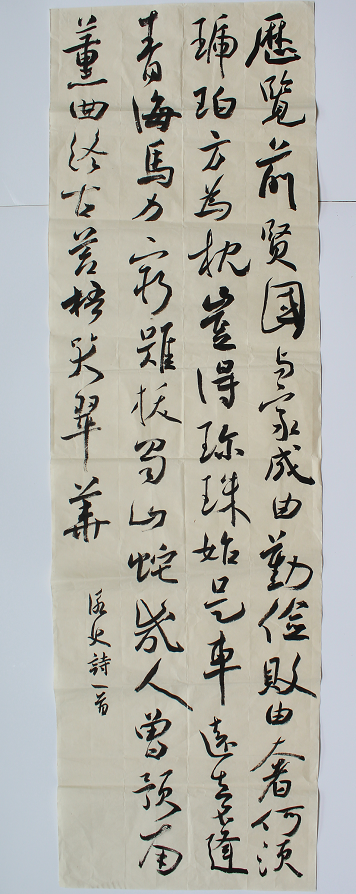 歷覽前賢國与家成由勤儉敗由奢何須
琥珀方為枕豈得珍珠始是車遠去不逢
青海馬力窮難拔蜀山蛇幾人曾預南
薰曲終古蒼梧哭翠華
詠史詩一首